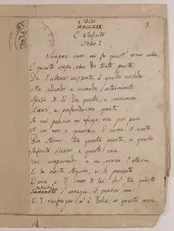 MDCCCXIX
L'Infinito
Sempre caro mi fu quest'ermo colle,
E questa siepe, che da tanta parte
De l'ultimo orizzonte il guardo esclude.
Ma sedendo e mirando, interminato
Spazio di là da quella, e sovrumani
Silenzi, e profondissima quiete
Io nel pensier mi fingo, ove per poco
Il cor non si spaura. E come il vento
Odo stormir tra queste piante, io quello
Infinito silenzio a questa voce
Vo comparando: e mi sovvien l'eterno,
E le morte stagioni, e la presente
E viva, e 'l suon di lei. Così tra questa
s'annega il pensier mio:
E 'l naufragar m'è dolce in questo mare.